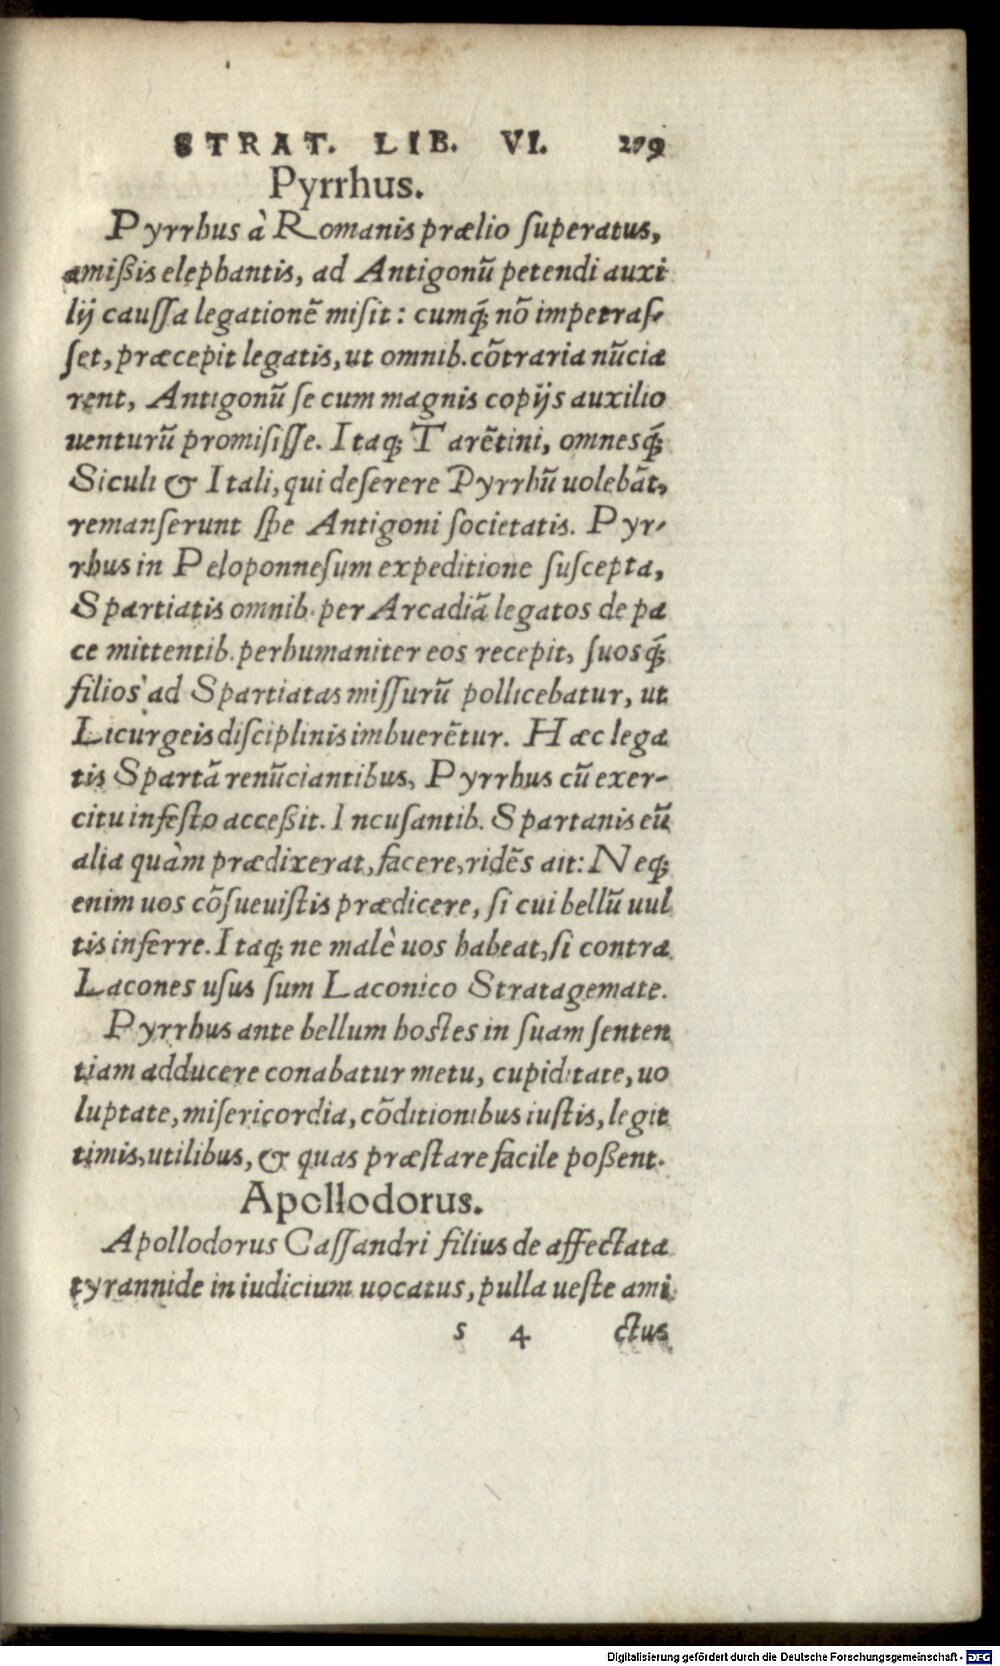 STRAT. LIB. VI. 279
Pyrrhus.
Pyrrhus à Romanis prælio ſuperatus,
amißis elephantis, ad Antigonū petendi auxi
lij cauſſa legationē miſit: cumq́; nō impetraſ-
ſet, præcepit legatis, ut omnib. cōtraria nūcia
rent, Antigonū ſe cum magnis copijs auxilio
uenturū promiſiſſe. Itaq; Tarētini, omnesq́;
Siculi & Itali, qui deſerere Pyrrhū uolebāt,
remanſerunt ſpe Antigoni ſocietatis. Pyr-
rhus in Peloponneſum expeditione ſuſcepta,
Spartiatis omnib. per Arcadiā legatos de pa
ce mittentib. perhumaniter eos recepit, ſuosq́;
filios ad Spartiatas miſſurū pollicebatur, ut
Licurgeis diſciplinis imbuerētur. Hæc lega
tis Spartā renūciantibus, Pyrrhus cū exer-
citu infeſto acceßit. Incuſantib. Spartanis eū
alia quàm prædixerat, facere, ridēs ait: Neq;
enim uos cōſueuiſtis prædicere, ſi cui bellū uul
tis inferre. Itaq; ne malè uos habeat, ſi contra
Lacones uſus ſum Laconico Stratagemate.
Pyrrhus ante bellum hoſtes in ſuam ſenten
tiam adducere conabatur metu, cupiditate, uo
luptate, miſericordia, cōditionibus iuſtis, legit
timis, utilibus, & quas præſtare facile poßent.
Apollodorus.
Apollodorus Caſſandri filius de affectata
tyrannide in iudicium uocatus, pulla ueſte ami
s 4 ctus
Digitalisierung gefördert durch die Deutsche Forschungsgemeinschaft - DFG